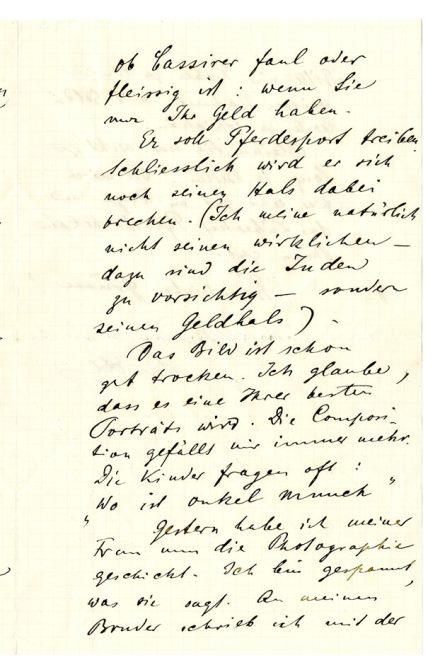 ob Cassirer faul oder
fleissig ist: wenn Sie
nur Ihr Geld haben.
Er soll Pferdesport treiben.
Schliesslich wird er sich
noch seinen Hals dabei
brechen. (Ich meine natürlich
nicht seinen wirklichen —
dazu sind die Juden
zu vorsichtig — sondern
seinen Geldhals) –
Das Bild ist schon
gut trocken. Ich glaube,
dass es eine Ihrer besten
Porträts wird. Die Composi-
tion gefällt mir immer mehr.
Die Kinder fragen oft:
"Wo ist onkel Munch"
Gestern habe ich meiner
Frau nun die Photographie
geschickt. Ich bin gespannt,
was sie sagt. An meinen
Bruder schrieb ich mit der